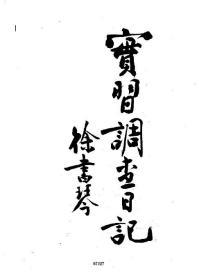 實習調查日記
徐書琴